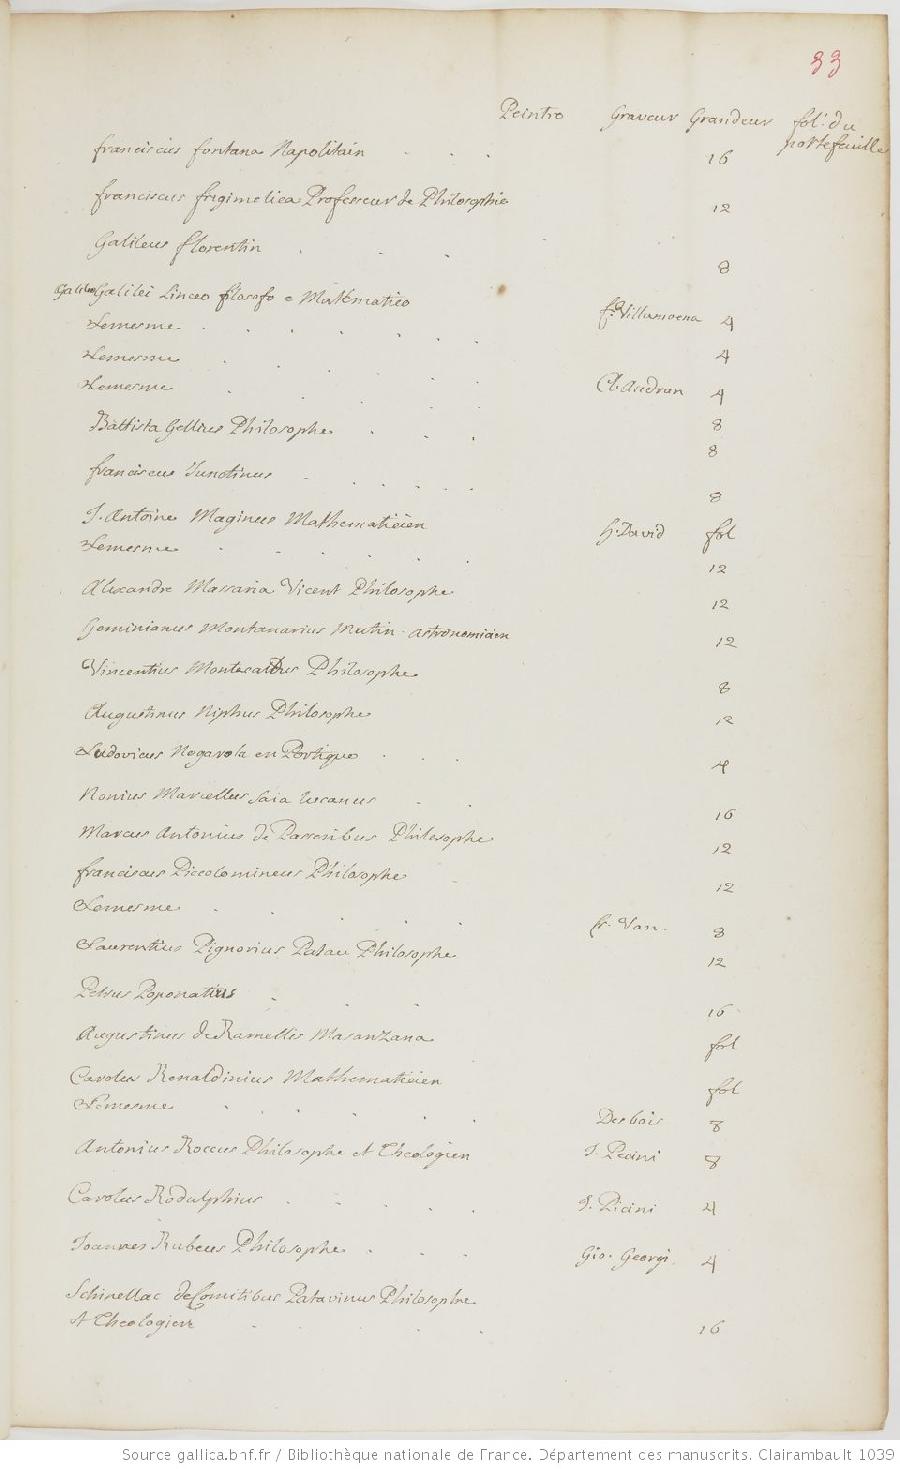 33
Peintre Graveur Grandeur fol. du
portefeuille
franciscus fontana Napolitain 16
franciscus frigimelica Professeur de Philosophie 12
Galileus florentin 8
Galileo Galilei Linceo filosofo e Matematico
Lemesme f. Villamoena 4
Lemesme 4
Lemesme Cl. Audran 4
Battista Gellius Philosophe 8
8
franciscus Junctinus 8
J. Antoine Maginus Mathematicien
Lemesme H. David fol
12
Alexandre Massaria Vicent Philosophe 12
Geminianus Montanarius Mutin. astronomien 12
Vincentius Montecatus Philosophe 8
Augustinus Niphus Philosophe 12
Ludovicus Nogarola en Portique 4
Nonius Marcellus Saia lucanus 16
Marcus Antonius de Passeribus Philosophe 12
franciscus Piccolomineus Philosophe 12
Lemesme fr. Van. 8
Laurentius Pignorius Patau Philosophe 12
Petrus Poponatius 16
Augustinus de Ramellis Masanzana fol
Carolus Renaldinius Mathematicien fol
Lemesme Desbois 8
Antonius Roccus Philosophe et Theologien J. Picini 8
Carolus Rodulphius J. Picini 4
Joannes Rubeus Philosophe Gio. Georgi. 4
Schinellae de Comitibus Patavinus Philosophe
et Theologien 16
Source gallica.bnf.fr / Bibliothèque nationale de France. Département des manuscrits. Clairambault 1039